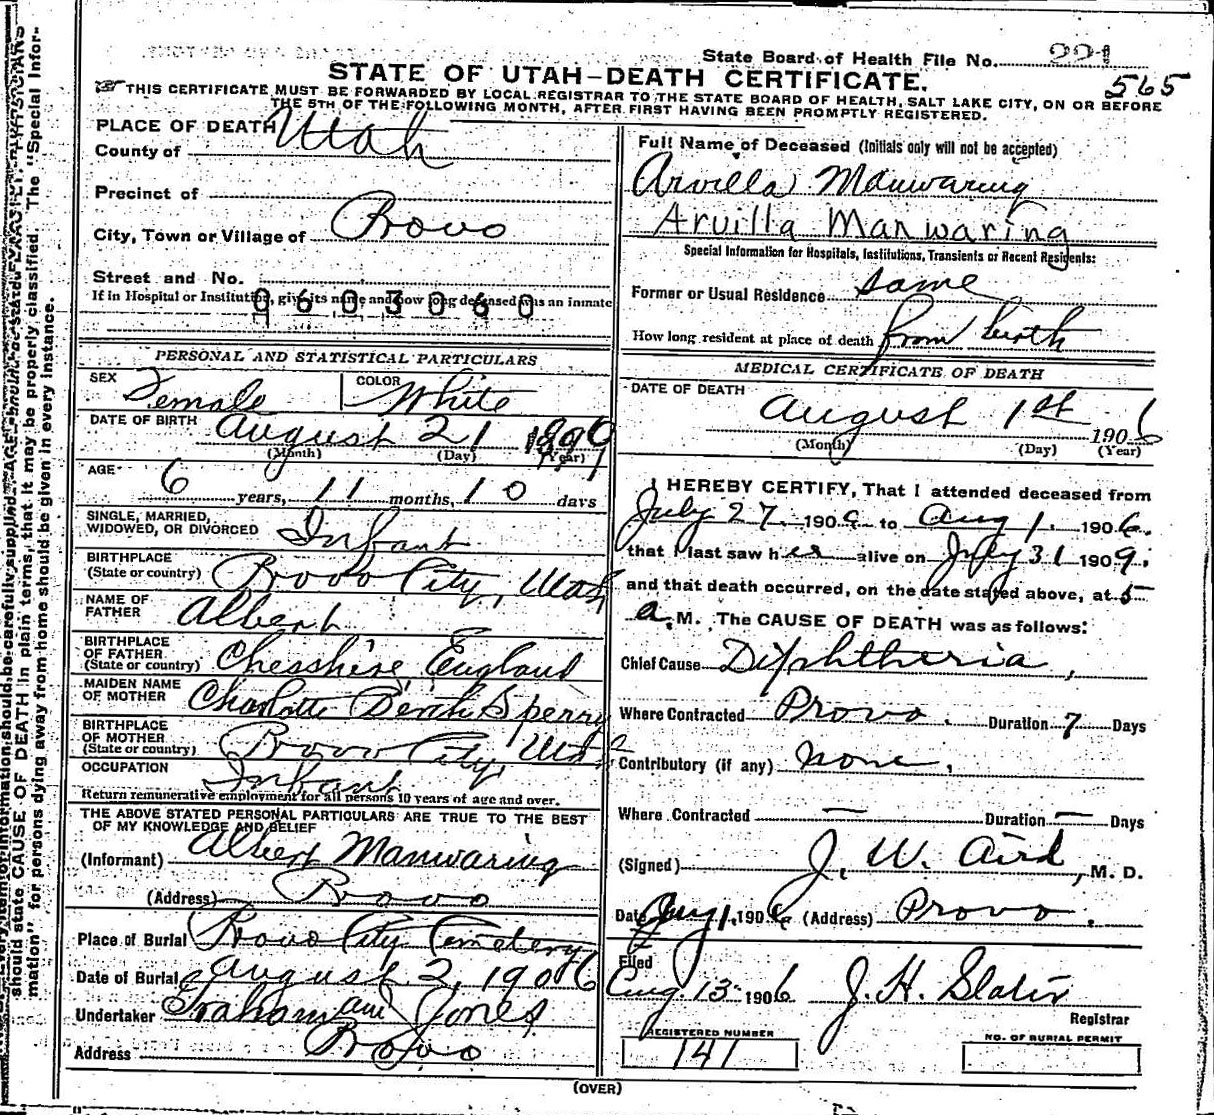 State Board of Health File No. 221
565
STATE OF UTAH—DEATH CERTIFICATE.
THIS CERTIFICATE MUST BE FORWARDED BY LOCAL REGISTRAR TO THE STATE BOARD OF HEALTH, SALT LAKE CITY, ON OR BEFORE
THE 5TH OF THE FOLLOWING MONTH, AFTER FIRST HAVING BEEN PROMPTLY REGISTERED.
PLACE OF DEATH
County of Utah
Precinct of
City, Town or Village of Provo
Street and No.
If in Hospital or Institution, give its name and how long deceased was an inmate
0603060
PERSONAL AND STATISTICAL PARTICULARS
SEX Female COLOR White
DATE OF BIRTH August 21 1899
(Month) (Day) (Year)
AGE 6 years, 11 months, 10 days
SINGLE, MARRIED,
WIDOWED, OR DIVORCED Infant
BIRTHPLACE
(State or country) Provo City, Utah
NAME OF
FATHER Albert
BIRTHPLACE
OF FATHER
(State or country) Chesshire, England
MAIDEN NAME
OF MOTHER Charlotte Sperry
BIRTHPLACE
OF MOTHER
(State or country) Provo City, Utah
OCCUPATION Infant
Return remunerative employment for all persons 10 years of age and over.
THE ABOVE STATED PERSONAL PARTICULARS ARE TRUE TO THE BEST
OF MY KNOWLEDGE AND BELIEF
(Informant) Albert Manwaring
(Address) Provo
Place of Burial Provo City Cemetery
Date of Burial August 2, 1906
Undertaker Graham and Jones
Address Provo
Full Name of Deceased (Initials only will not be accepted)
Arvilla Manwaring
Arvilla Manwaring
Special Information for Hospitals, Institutions, Transients or Recent Residents:
Former or Usual Residence same
How long resident at place of death from birth
MEDICAL CERTIFICATE OF DEATH
DATE OF DEATH
August 1st 1906
(Month) (Day) (Year)
I HEREBY CERTIFY, That I attended deceased from
July 27. 1906 to Aug 1. 1906.
that I last saw her alive on July 31 190
and that death occurred, on the date stated above, at 5
a. M. The CAUSE OF DEATH was as follows:
Chief Cause Diphtheria,
Where Contracted Provo. Duration 7 Days
Contributory (if any) none,
Where Contracted — Duration — Days
(Signed) J. W. Aird, M. D.
Date Aug 1, 1906 (Address) Provo.
Filed
Aug. 13 1906 J. H. Slater
Registrar
REGISTERED NUMBER
141
NO. OF BURIAL PERMIT
(OVER)
should state CAUSE OF DEATH in plain terms, that it may be properly classified. The "Special Infor-
mation" for persons dying away from home should be given in every instance.